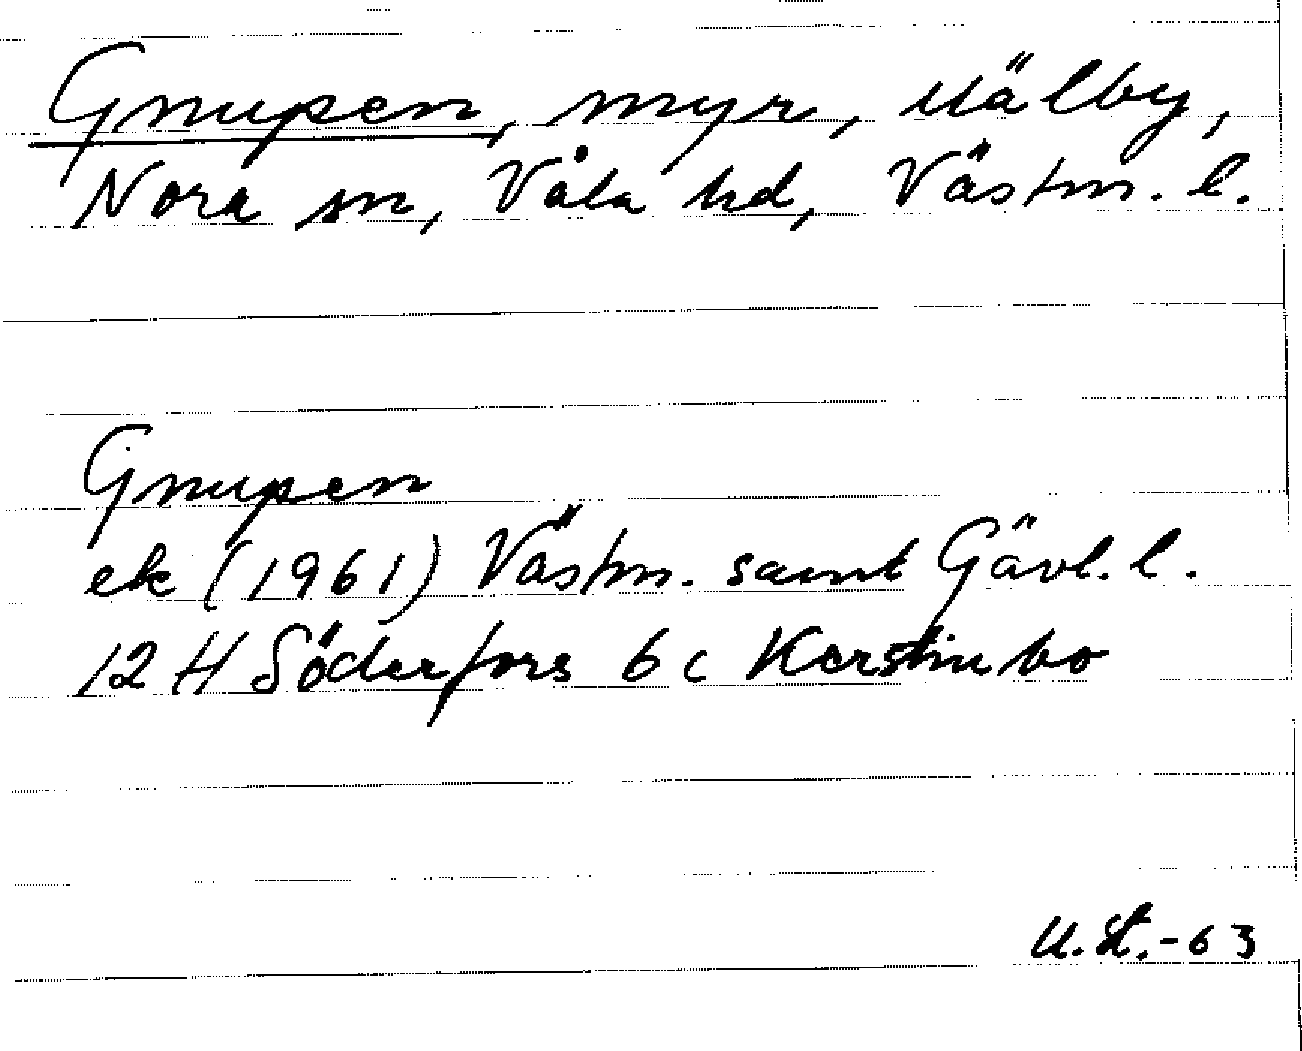 Gnupen, myr, Mälby,
Nora sn, Våla hd, Västm. l.
Gnupen
ek (1961) Västm. samt Gävl. l.
12 H Söderfors 6 c Kerstinbo
U.St.-63